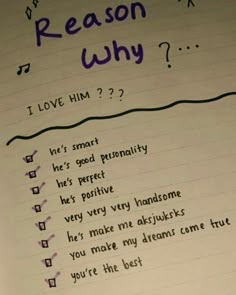 Reason
Why ? ...
I LOVE HIM ? ? ?
he's smart
he's good personality
he's perfect
he's positive
very very very handsome
he's make me aksjuksks
you make my dreams come true
you're the best